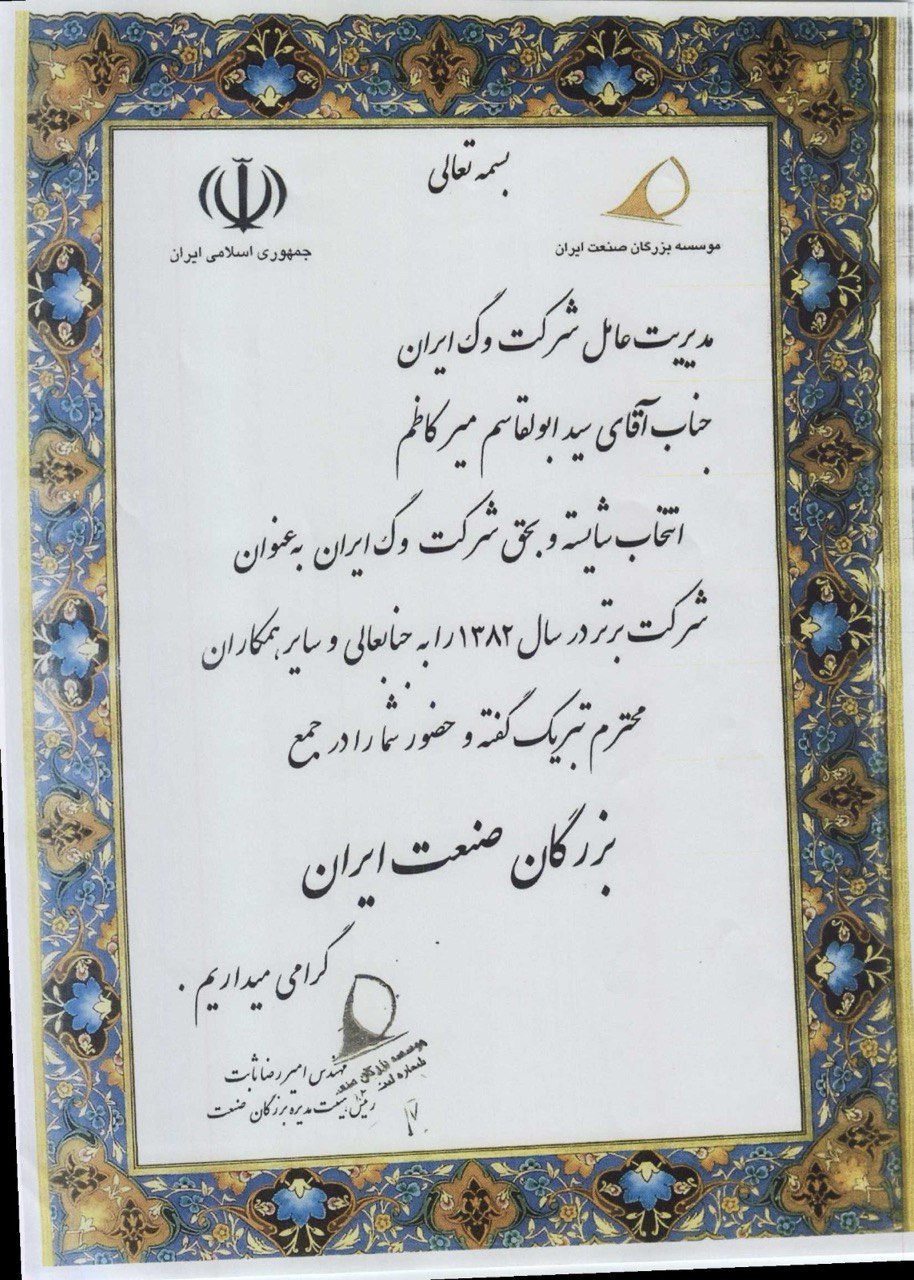 بسمه تعالی
موسسه بزرگان صنعت ایران
جمهوری اسلامی ایران
مدیریت عامل شرکت وگ ایران
جناب آقای سید ابولقاسم میر کاظم
انتخاب شایسته و بحق شرکت وگ ایران به عنوان
شرکت برتر در سال ۱۳۸۲ را به جنابعالی و سایر همکاران
محترم تبریک گفته و حضور شما را در جمع
بزرگان صنعت ایران
گرامی میداریم .
موسسه بزرگان صنعت
مهندس امیر رضا ثابت
رئیس هیئت مدیره بزرگان صنعت